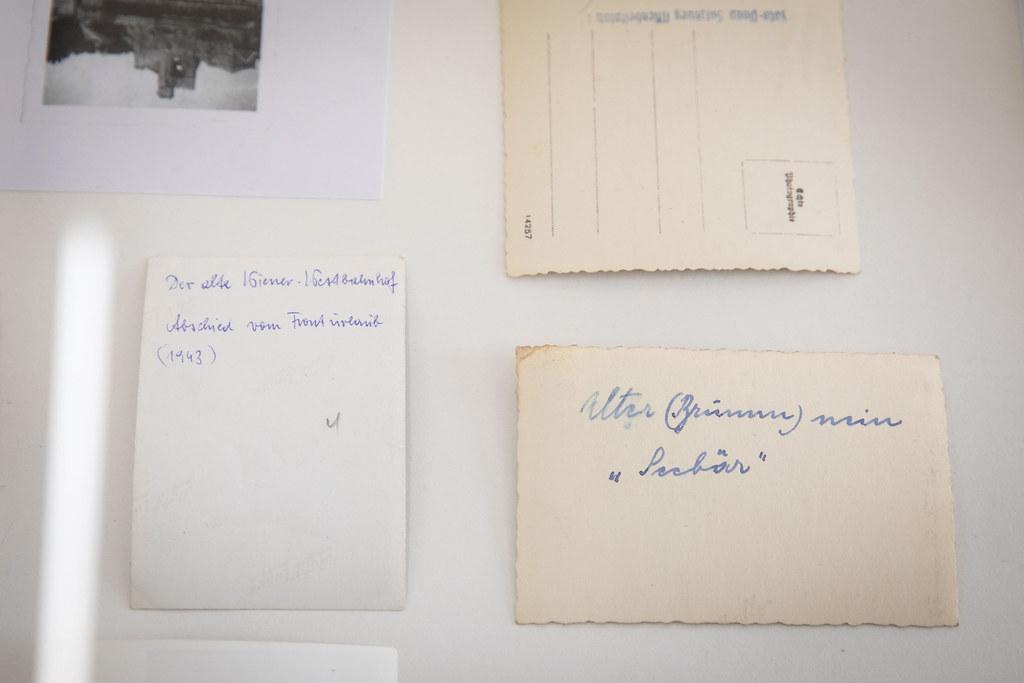 Foto-Dapp Salzburg
14257
Echte
Photographie
Der alte Wiener-Westbahnhof
Abschied vom Fronturlaub
(1943)
4
Alter (Brünnn) mein
„Seebär"